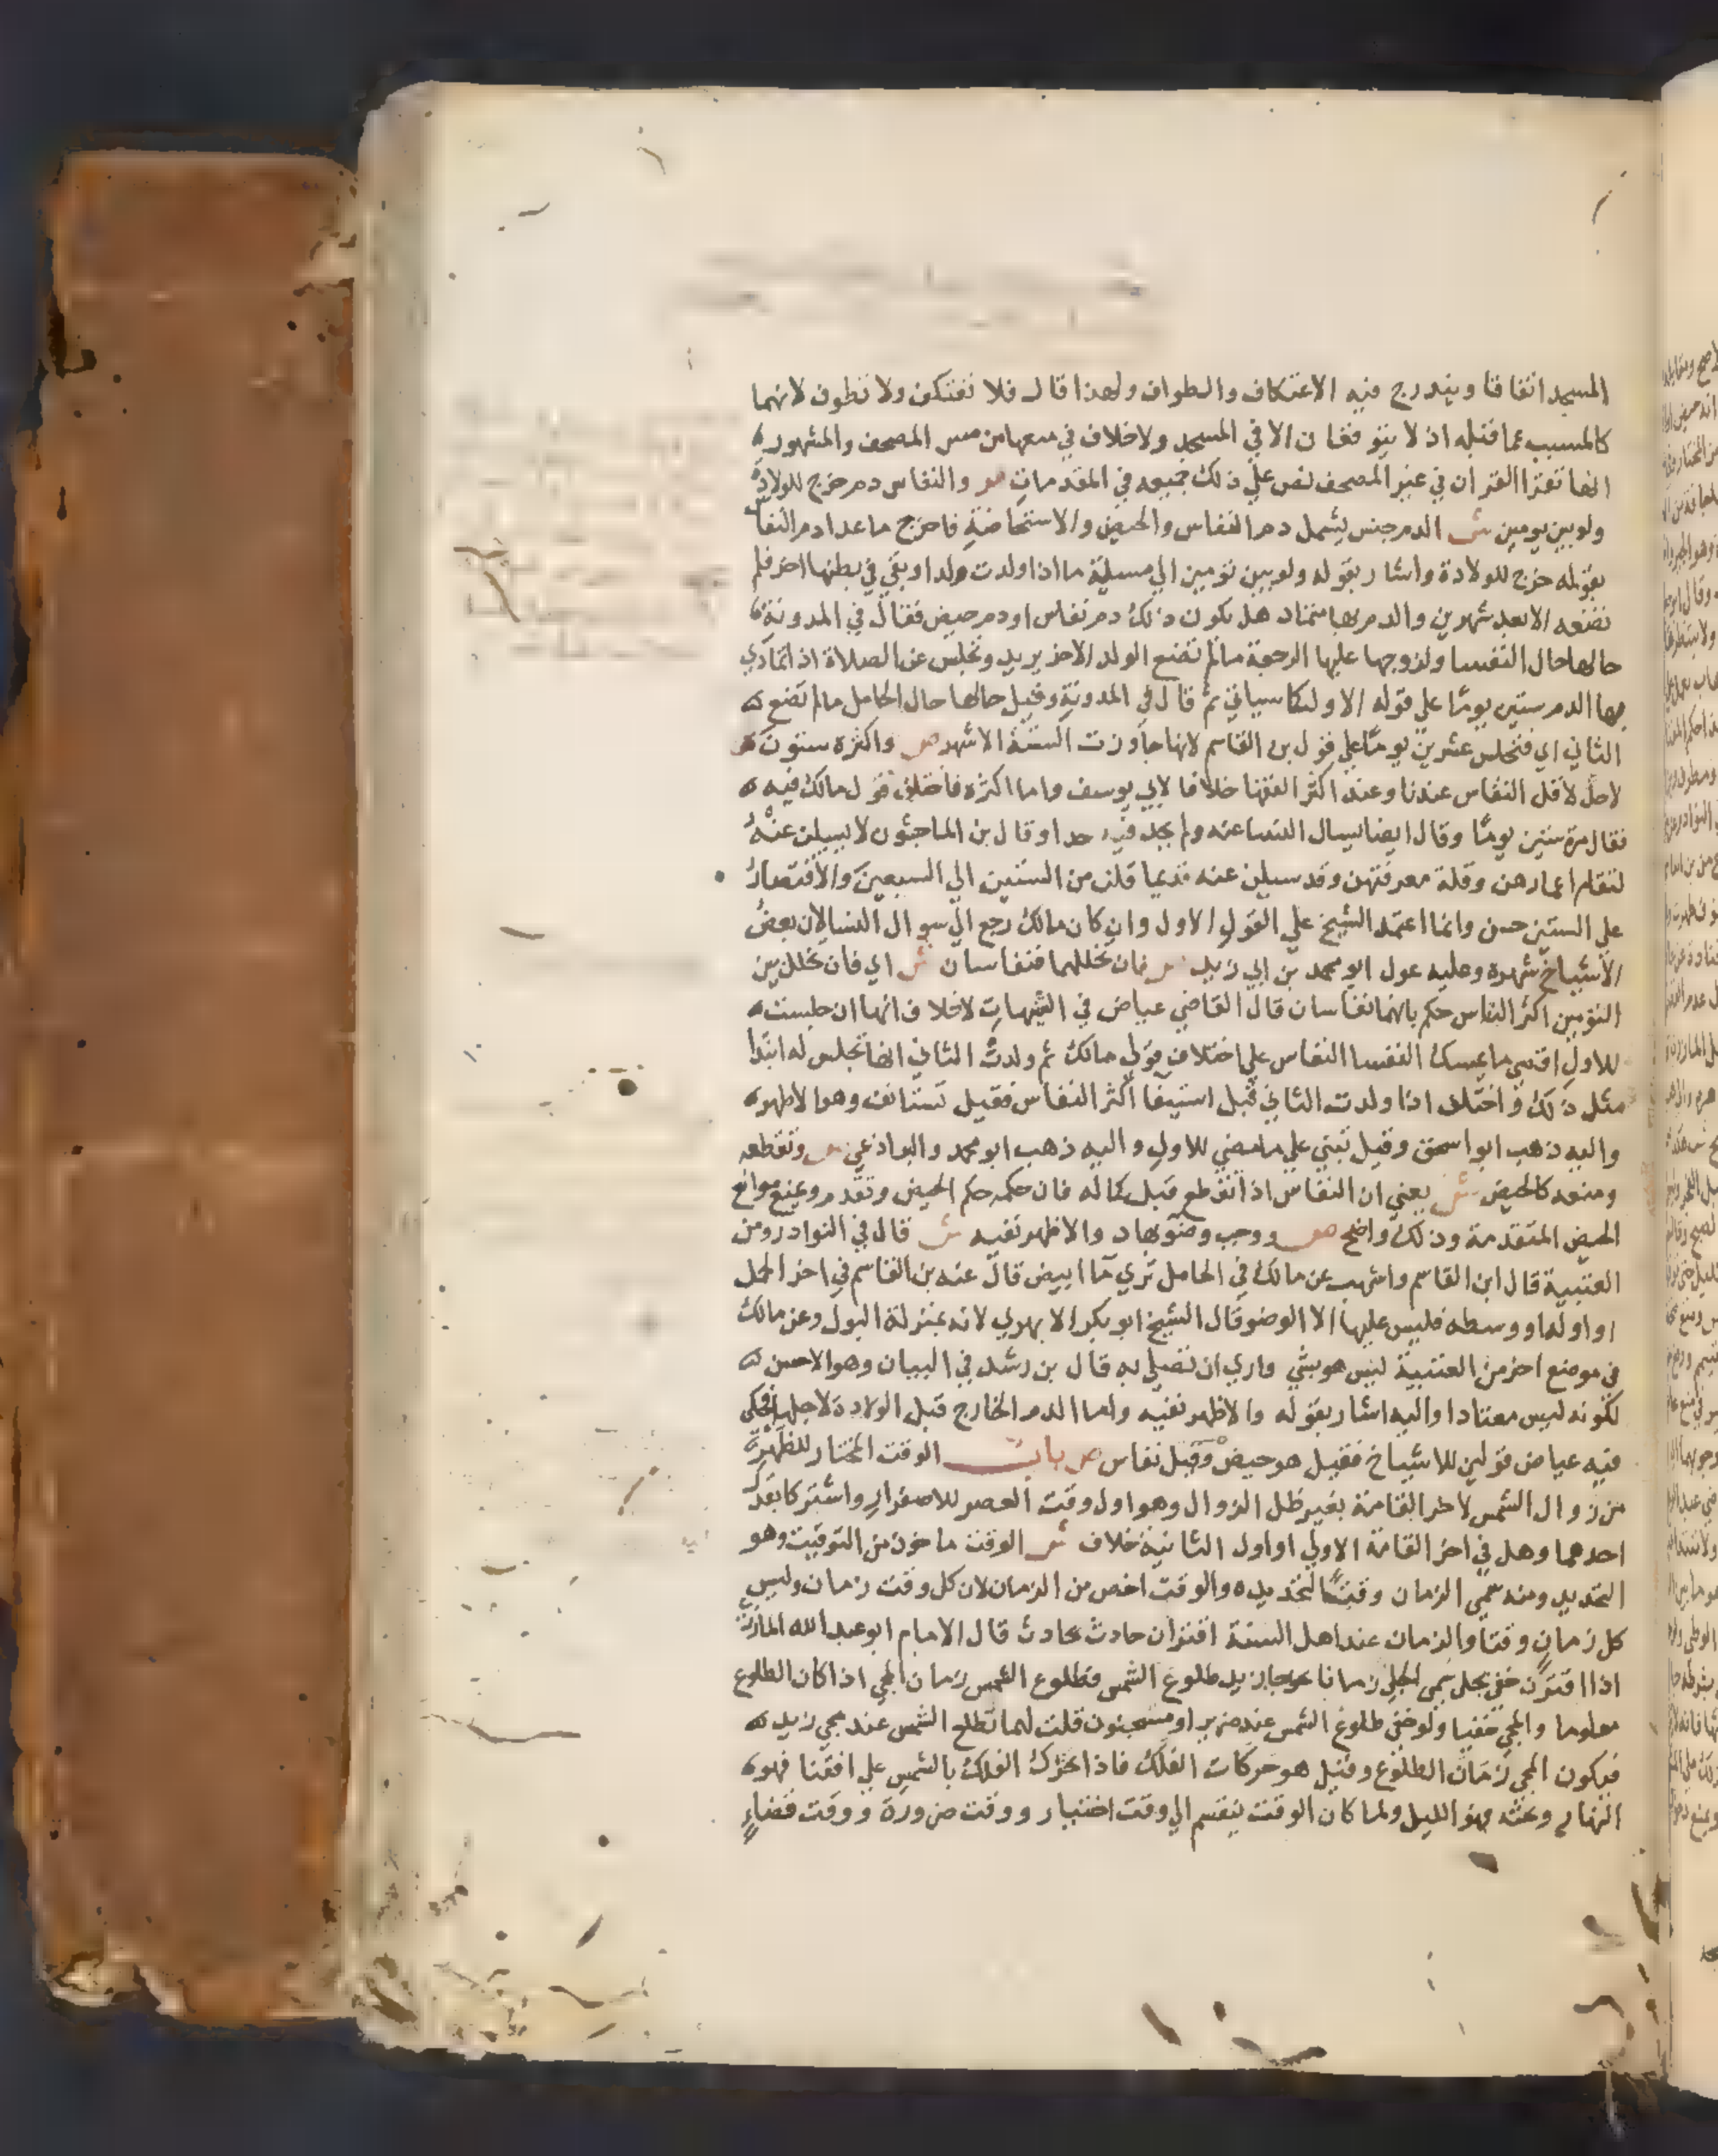 المسجد اتفاقا ويندرج فيه الاعتكاف والطواف ولهذا قال فلا تعتكف ولا تطوف لانهما
كالمسبب عما قبله اذ لا يتوقفان الا في المسجد ولا خلاف في منعها من مس المصحف والمشهور
انها تقرا القران في غير المصحف نص علي ذلك جميعه في المقدمات ص والنفاس دم خرج للولادة
ولو بين يومين ش الدم جنس يشمل دم النفاس والحيض والاستحاضة فاخرج ما عدا دم النفاس
بقوله خرج للولادة واشار بقوله ولو بين تومين الي مسيلة ما اذا ولدت ولدا وبقي في بطنها اخر فلم
تضعه الا بعد شهرين والدم بها متماد هل يكون ذلك دم نفاس او دم حيض فقال في المدونة
حالها حال النفسا ولزوجها عليها الرجعة ما لم تضع الولد الاخر يريد وتجلس عن الصلاة اذا تمادي
بها الدم ستين يوما علي قوله الاول كما سياتي ثم قال في المدونة وقيل حالها حال الحامل ما لم تضع
الثاني اي فتجلس عشرين يوما علي قول بن القاسم لانها جاوزت الستة الاشهر ص واكثره ستون ش
لا حد لاقل النفاس عندنا وعند اكثر الفقها خلافا لابي يوسف واما اكثره فاختلف قول مالك فيه
فقال مرة ستين يوما وقال ايضا يسال النسا عنه ولم يحد فيه حدا وقال بن الماجشون لا يسيلن عنه
لتقاصر اعمارهن وقلة معرفتهن وقد سيلن عنه قديما فقلن من الستين الي السبعين والاقتصار
علي الستين حسن وانما اعتمد الشيخ علي القول الاول وان كان مالك رجع الي سوال النسا لان بعض
الاشياخ شهره وعليه عول ابو محمد بن ابي زيد ص فان تخللهما فنفاسان ش اي فان تخلل بين
التومين اكثر النفاس حكم بانهما نفاسان قال القاضي عياض في التنبيهات لا خلاف انها ان جلست
للاول اقصي ما يمسك النفسا النفاس علي اختلاف قول مالك ثم ولدت الثاني انها تجلس له ابتدا
مثل ذلك واختلف اذا ولدت الثاني قبل استيفا اكثر النفاس فقيل تستانف وهو الاظهر
واليه ذهب ابو اسحق وقيل تبني علي ما مضي للاول واليه ذهب ابو محمد والبراذعي ص وتقطعه
ومنعه كالحيض ش يعني ان النفاس اذا انقطع قبل كماله فان حكمه حكم الحيض وتقدم ويمنع موانع
الحيض المتقدمة وذلك واضح ص ووجب وضو بهاد والاظهر نفيه ش قال في النوادر ومن
العتبية قال ابن القاسم واشهب عن مالك في الحامل تري ما ابيض قال عنه بن القاسم في اخر الحمل
او اوله او وسطه فليس عليها الا الوضو قال الشيخ ابو بكر الابهري لانه بمنزلة البول وعن مالك
في موضع اخر من العتبية ليس هو بشي واري ان تصلي به قال بن رشد في البيان وهو الاحسن
لكونه ليس معتادا واليه اشار بقوله والاظهر نفيه واما الدم الخارج قبل الولادة لاجلها فحكي
فيه عياض قولين للاشياخ فقيل هو حيض وقيل نفاس ص باب الوقت المختار للظهر
من زوال الشمس لاخر القامة بغير ظل الزوال وهو اول وقت العصر للاصفرار واشتركا بقدر
احدهما وهل في اخر القامة الاولي او اول الثانية خلاف ش الوقت ماخوذ من التوقيت وهو
التحديد ومنه سمي الزمان وقتا لتحديده والوقت اخص من الزمان لان كل وقت زمان وليس
كل زمان وقتا والزمان عند اهل السنة اقتران حادث بحادث قال الامام ابو عبد الله المازري
اذا اقترن خفي بجلي سمي الجلي زمانا نحو جا زيد طلوع الشمس فطلوع الشمس زمان المجي اذا كان الطلوع
معلوما والمجي خفيا ولو خفي طلوع الشمس عند ضرير او مسجون قلت لهما تطلع الشمس عند مجي زيد
فيكون المجي زمان الطلوع وقيل هو حركات الفلك فاذا تحرك الفلك بالشمس علي افقنا فهو
النهار وعكسه فهو الليل ولما كان الوقت ينقسم الي وقت اختيار ووقت ضرورة ووقت قضاء